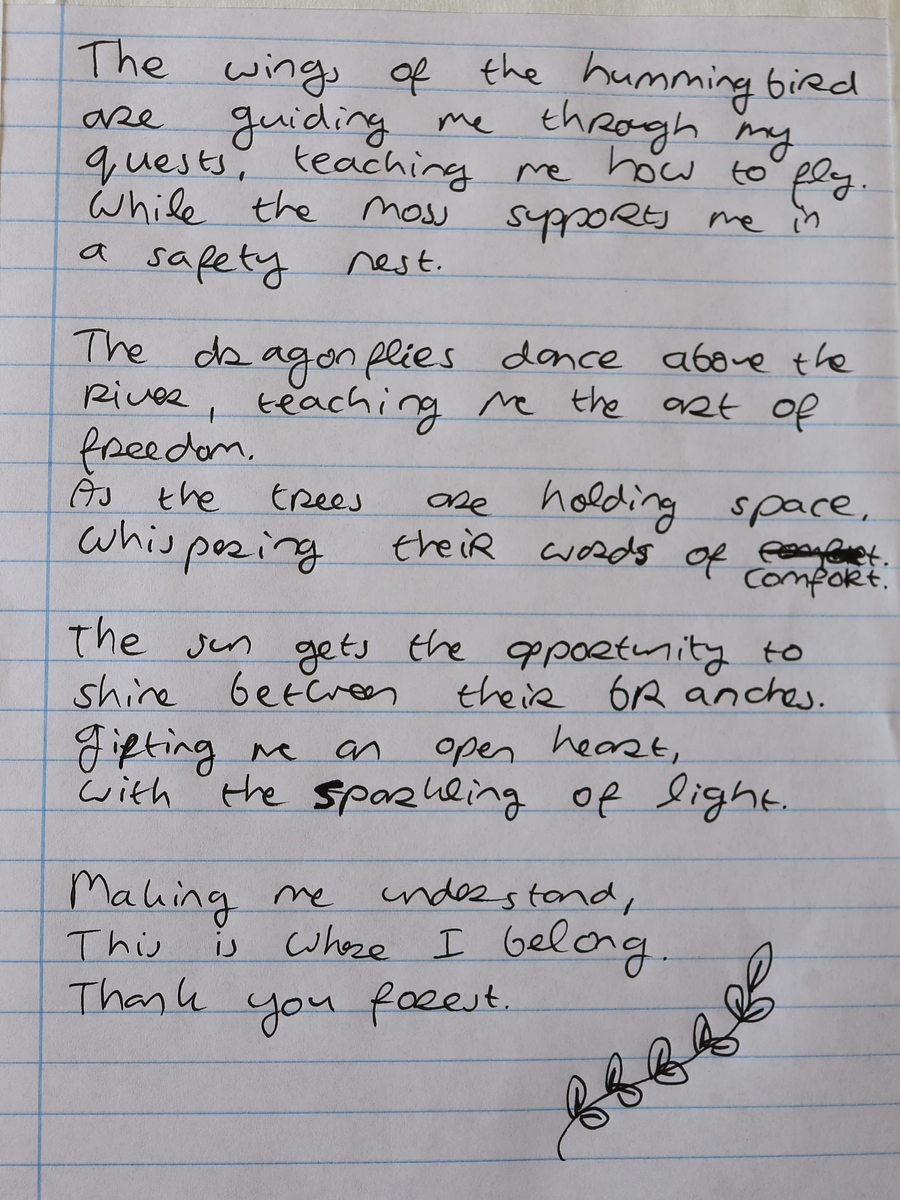 The wings of the hummingbird
are guiding me through my
quests, teaching me how to fly.
While the moss supports me in
a safety nest.
The dragonflies dance above the
River, teaching me the art of
freedom.
As the trees are holding space,
Whispering their words of
comfort.
The sun gets the opportunity to
shine between their branches.
Gifting me an open heart,
With the sparkling of light.
Making me understand,
This is where I belong.
Thank you forest.